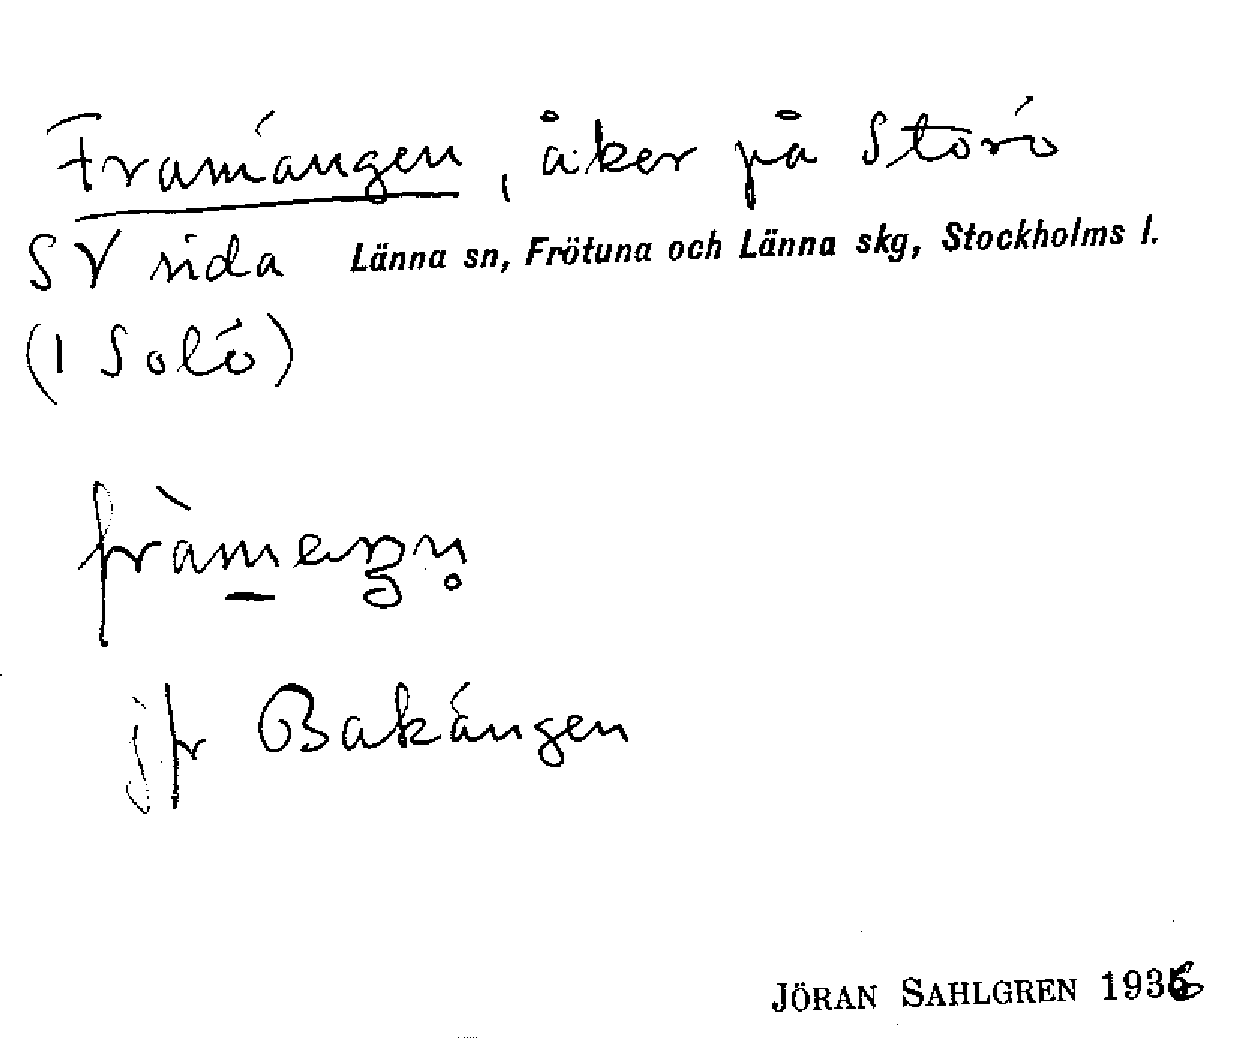 Framängen, åker på Storö
SV sida Länna sn, Frötuna och Länna skg, Stockholms l.
(1 Solö)
fràmeŋn̥
jfr Bakängen
JÖRAN SAHLGREN 1936